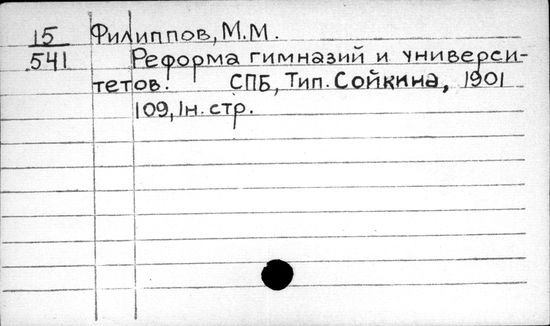 15 Филиппов, М.М.
541 Реформа гимназий и универси-
тетов. СПБ, Тип. Сойкина, 1901
109, 1н. стр.